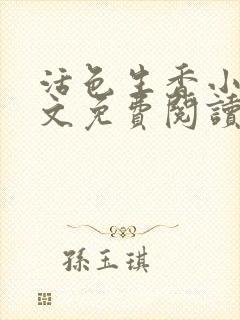 活色生香小
文免費閱讀
孫玉琪